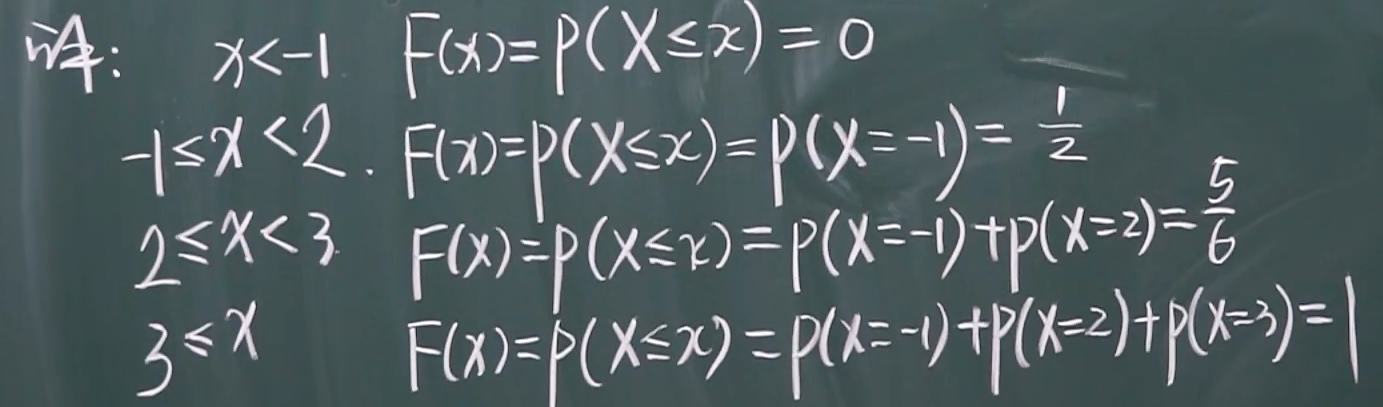 解: x<-1. F(x)=P(X≤x)=0
-1≤x<2. F(x)=P(X≤x)=P(X=-1)=1/2
2≤x<3. F(x)=P(X≤x)=P(X=-1)+P(X=2)=5/6
3≤x F(x)=P(X≤x)=P(X=-1)+P(X=2)+P(X=3)=1